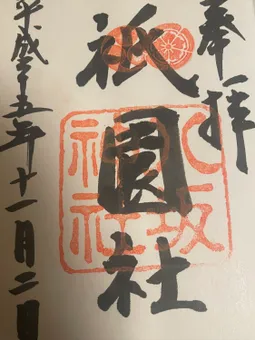 奉拝
八坂
神社
祇園社
平成十五年十一月二日